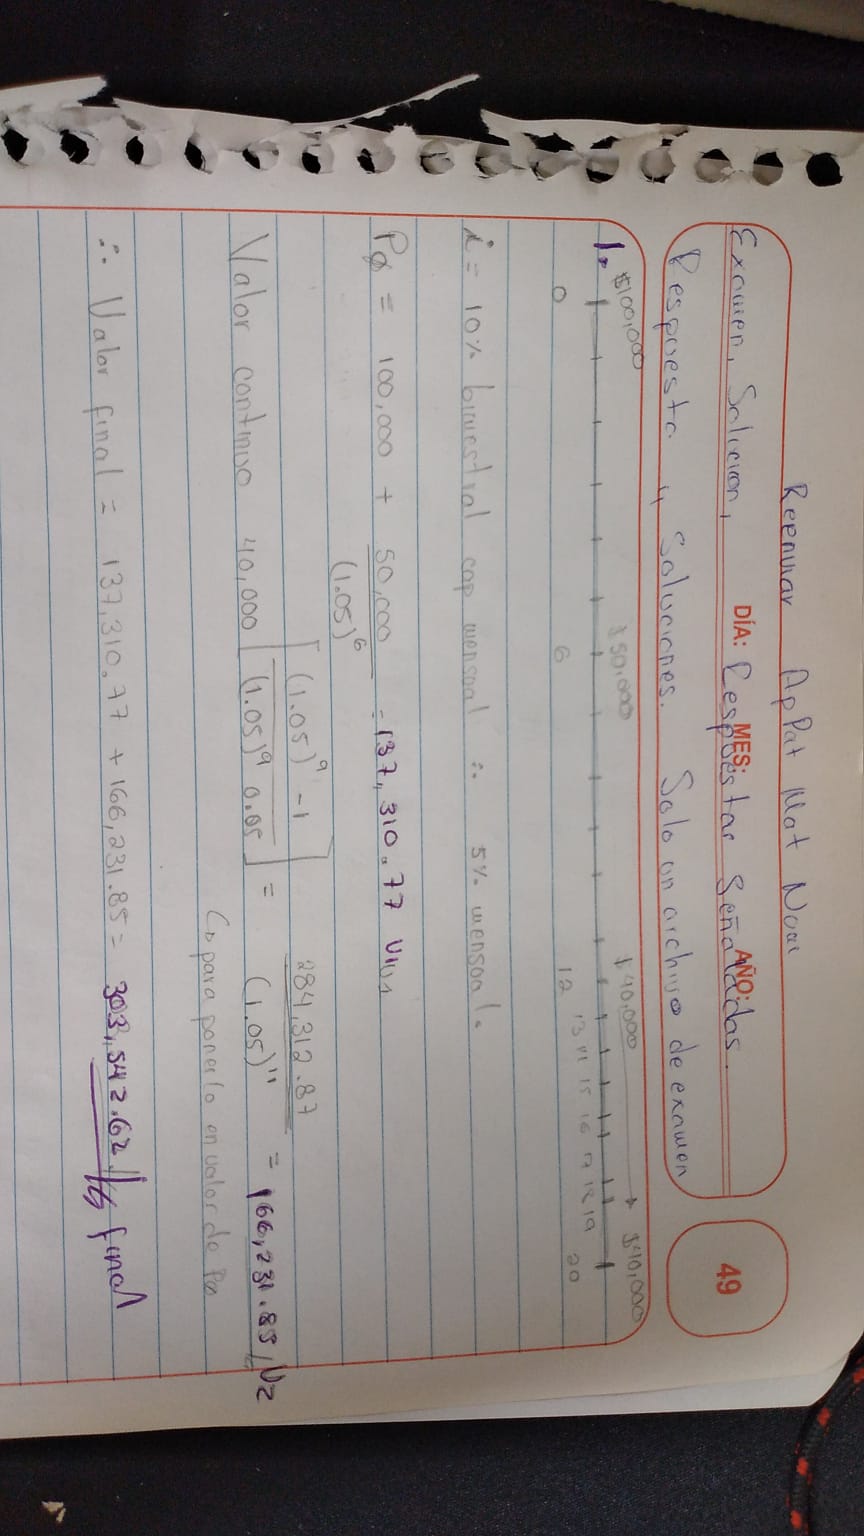 Renunar ApPat Mat Nom
Examen, Solución, Respuestas Señaladas.
DÍA: MES: AÑO:
49
Respuesta y Soluciones. Solo un archivo de examen
1. $100,000 $50,000 $40,000 $40,000
0 6 12 13 14 15 16 17 18 19 20
i = 10% bimestral cap mensual ∴ 5% mensual.
P0 = 100,000 + 50,000 / (1.05)^6 = 137,310.77
Valor continuo 40,000 [ (1.05)^9 - 1 / (1.05)^9 0.05 ] = 284,312.87 / (1.05)^11 = 166,231.85 / V2
para ponerlo en valor de P0
∴ Valor final = 137,310.77 + 166,231.85 = 303,542.62 final